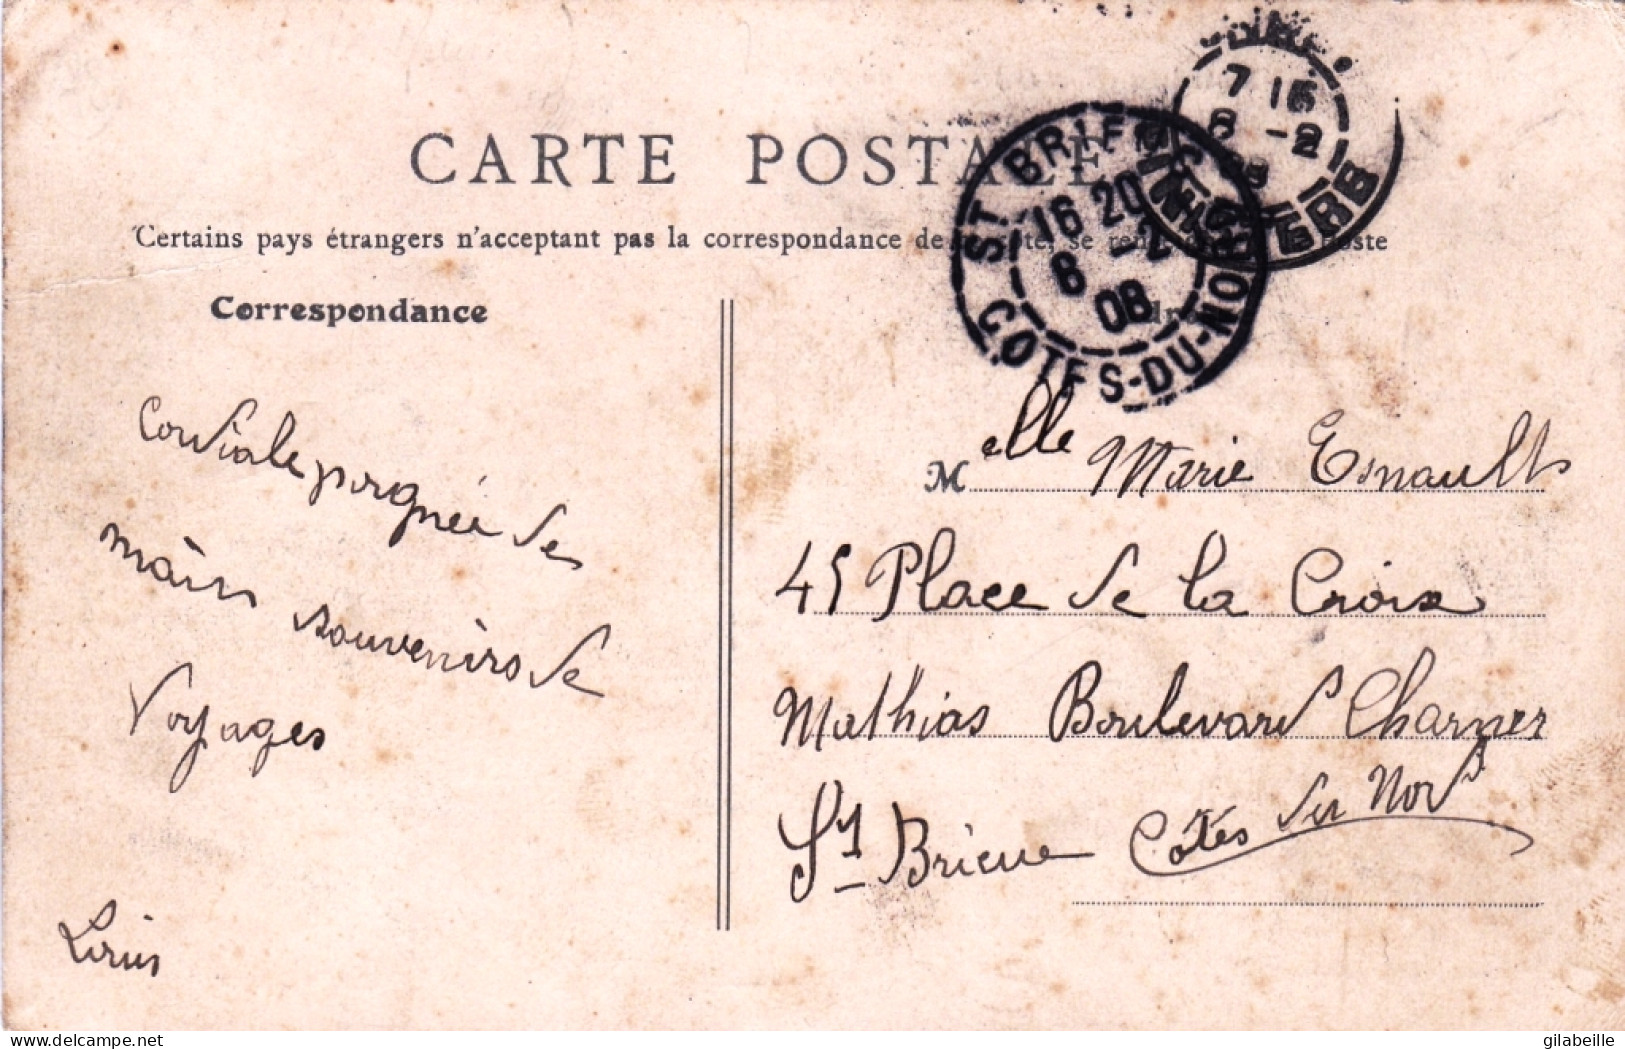 CARTE POSTALE
Certains pays étrangers n'acceptant pas la correspondance de
Correspondance
Cordiale poignée de
mains souvenirs de
Voyages
Louis
7 15
-2
INF ERB
ST BRIEUC
16 20
8 -2
08
COTES-DU-NORD
Melle Marie Esnault
45 Place de la Croix
Mathias Boulevard Charner
St Brieuc Côtés du Nord
gilabeille